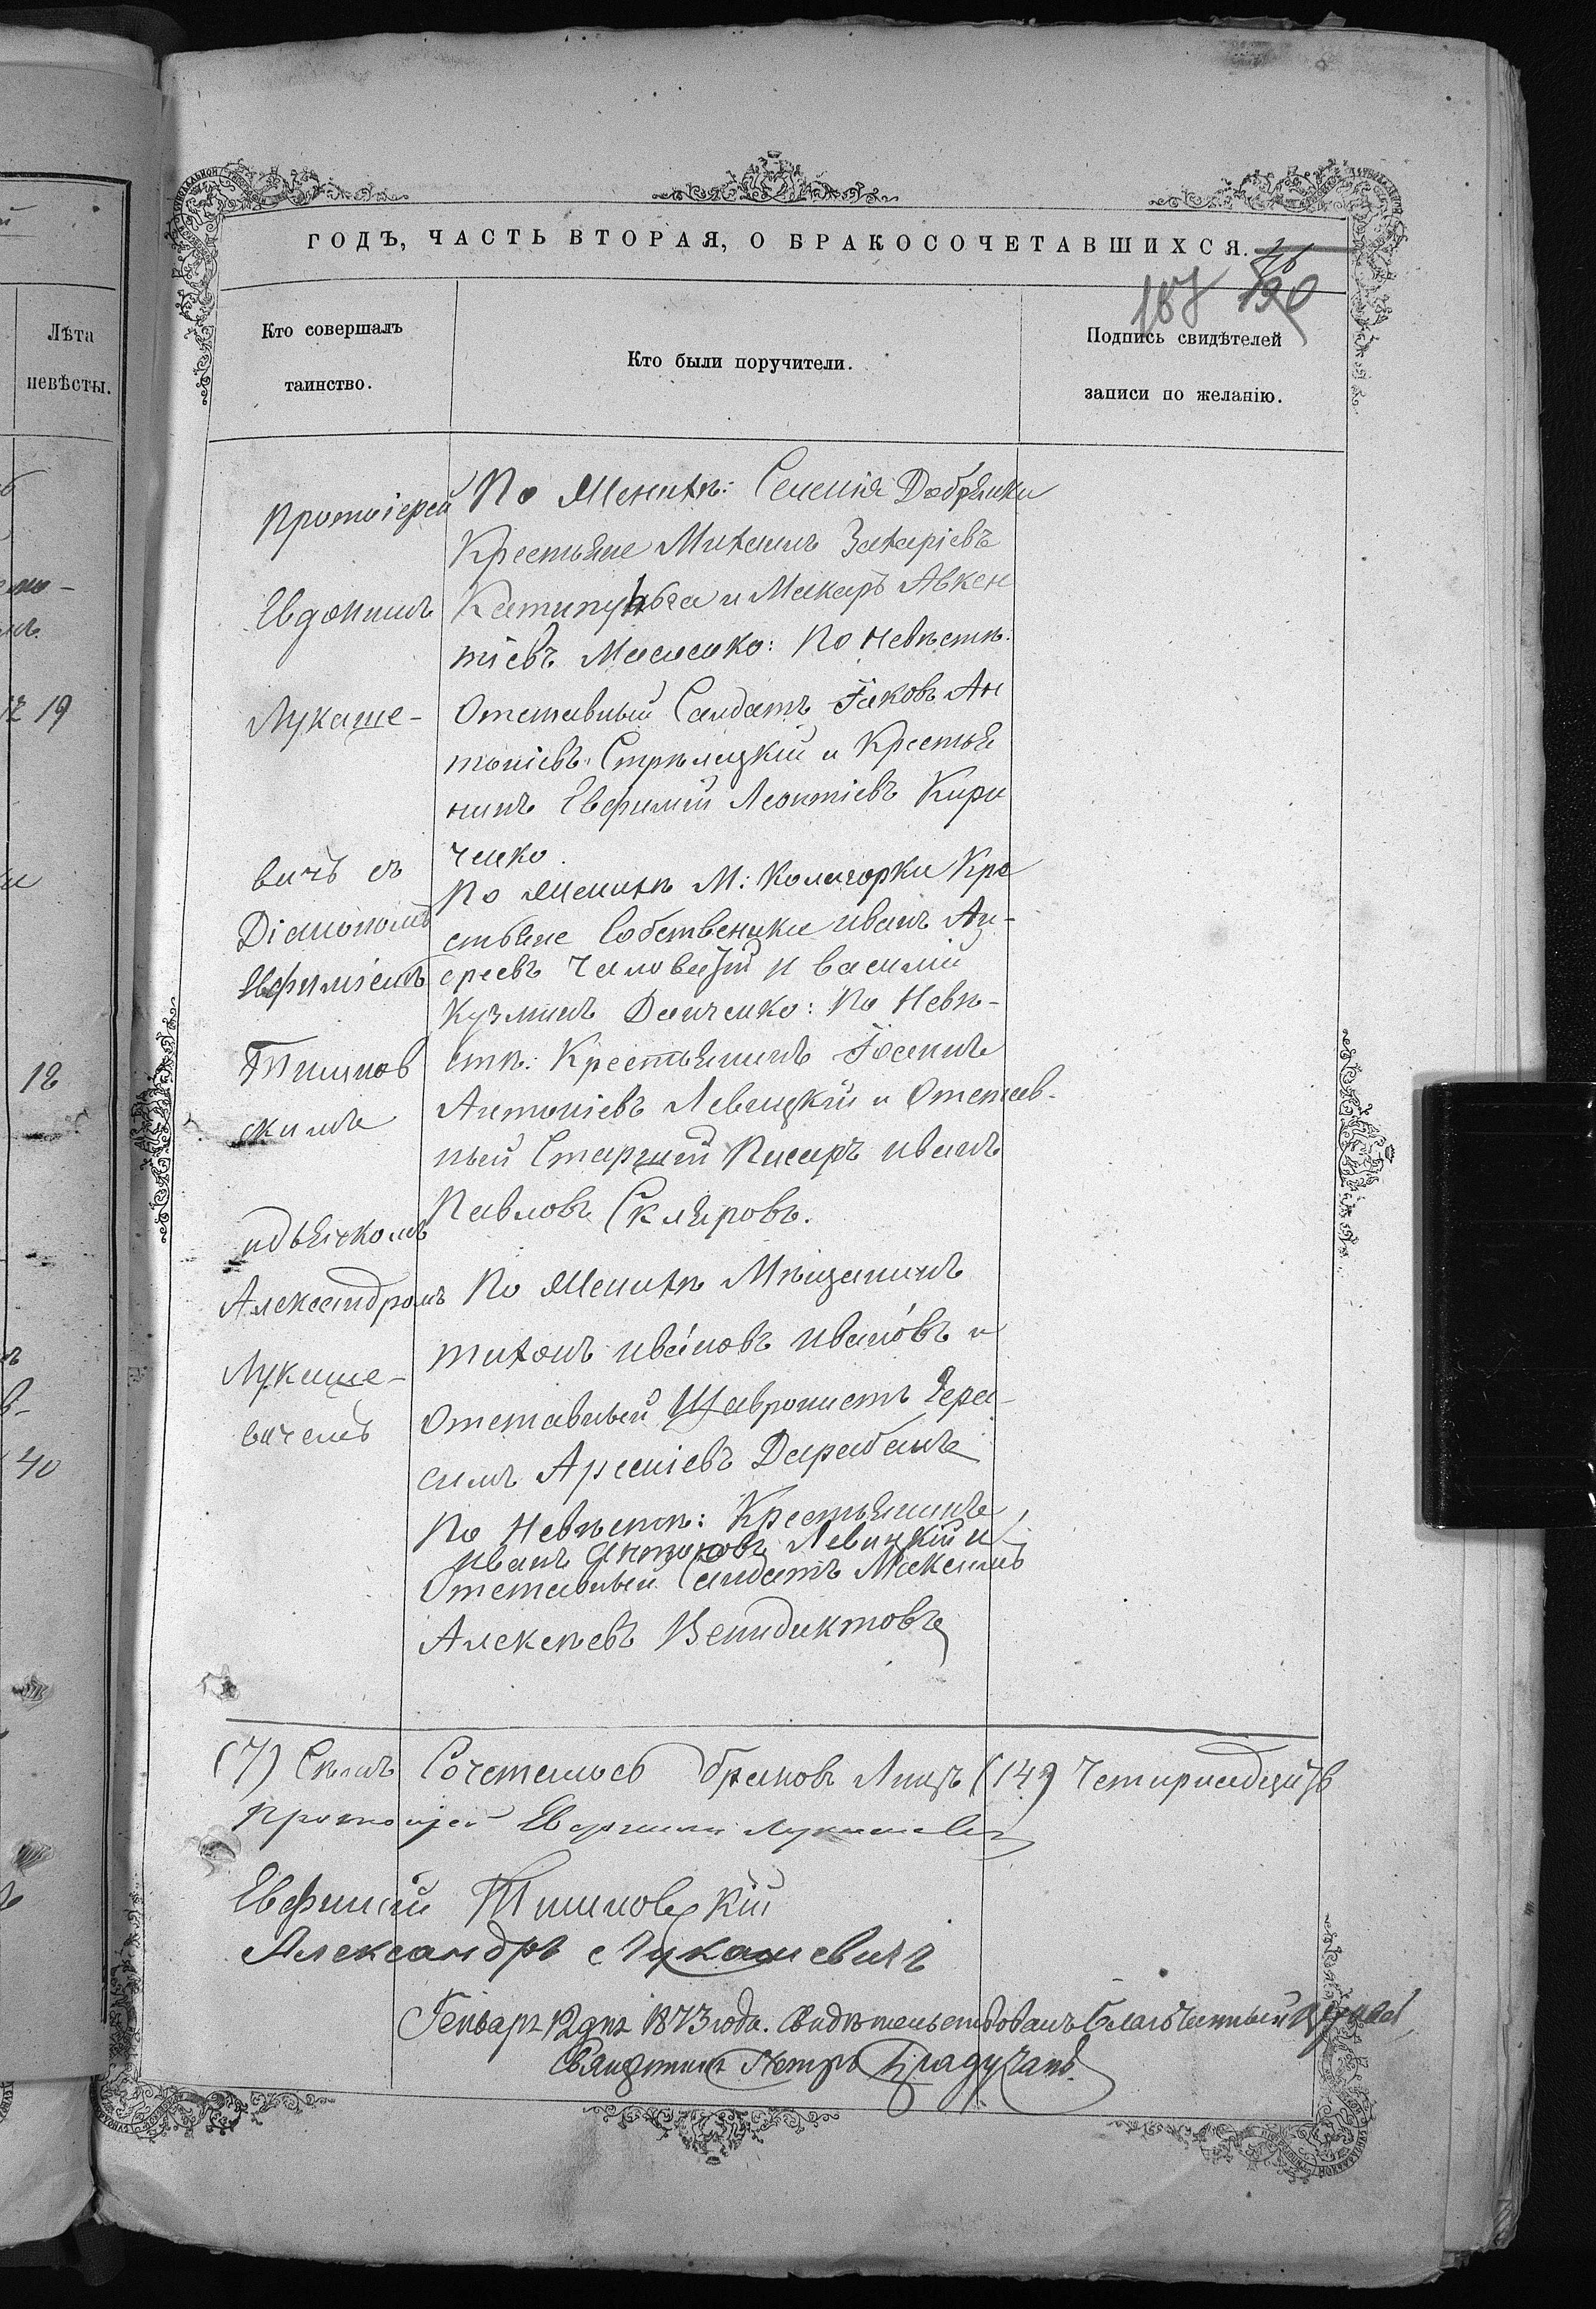 ГОДЪ, ЧАСТЬ ВТОРАЯ, О БРАКОСОЧЕТАВШИХСЯ.
190
Лѣта
невѣсты.
19
12
40
Кто совершалъ
таинство.
Кто были поручители.
Подпись свидѣтелей
записи по желанію.
Протоіерей
Евдокимъ
Лукаше-
вичъ съ
Діакономъ
Ефиміемъ
Тишков
скимъ
идьячкомъ
Александромъ
Лукаше-
вичемъ
По Женихѣ: Селенія Добрянки
Крестьяне Михаилъ Захаріевъ
и Макаръ Авкен
тіевъ Мосенко: По Невѣстѣ.
Отставный Салдатъ Іаковъ Ан
тоніевъ Стрѣлецкій и Крестья
нинъ Евфимій Леонтіевъ Кири
ченко.
По женихѣ М: Колигорки Кре
стьяне Собственики иванъ Ан-
и василій
Кузминъ Донченко: По Невѣ-
стѣ: Крестьянинъ Іосипъ
Антоніевъ Левицкій и Отстав-
ный Старшій Писаръ иванъ
Павловъ Скляровъ.
По Женихѣ Мѣщанинъ
тихонъ ива́новъ ивано́въ и
Отставный Гера-
симъ Арсеніевъ Дарабанъ
По Невѣстѣ: Крестьянинъ
иванъ Антоновъ Левицкій и
Отставный Салдатъ Максимъ
Алексѣевъ Венидиктовъ
(7) Семъ Сочеталось браковъ Лицъ (14) Четирнадцять
Протоіерей Евдокимъ Лукашевичъ
Евфимій Тишковскій
Александръ Лукашевичъ
Генваря 12 дня 1873 года. Свидѣтельствовалъ Благочинный
Священникъ Петръ